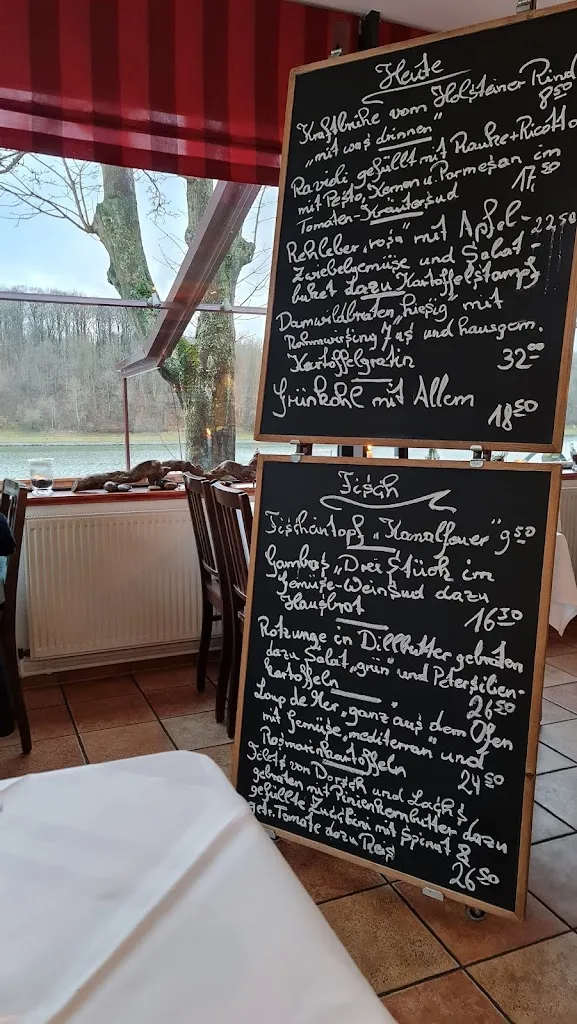 Heute
Kraftbrühe vom Holsteiner Rind
"mit was drinnen" 8⁵⁰
Ravioli gefüllt mit Rauke+Ricotta
mit Pesto, Kernen u. Parmesan im
Tomaten-Kräutersud 17,⁵⁰
Rehleber "rosa" mit Apfel- 22,50
Zwiebelgemüse und Salat-
buket dazu Kartoffelstampf
Damwildbraten "hiesig" mit
Rahmwirsing, Jus und hausgem.
Kartoffelgratin 32⁰⁰
Grünkohl mit Allem
18⁵⁰
Fisch
Fischeintopf "Kanalfeuer" 9⁵⁰
Gambas "Drei Stück im
Gemüse-Weinsud dazu
Hausbrot 16⁵⁰
Rotzunge in Dillbutter gebraten
dazu Salat "grün" und Petersilien-
kartoffeln 26⁵⁰
Loup de Mer "ganz" aus dem Ofen
mit Gemüse "mediterran" und
Rosmarinkartoffeln 24⁵⁰
Filets von Dorsch und Lachs
gebraten mit Pinienkernbutter dazu
gefüllte Zucchini mit Spinat &
getr. Tomate dazu Reis 26⁵⁰